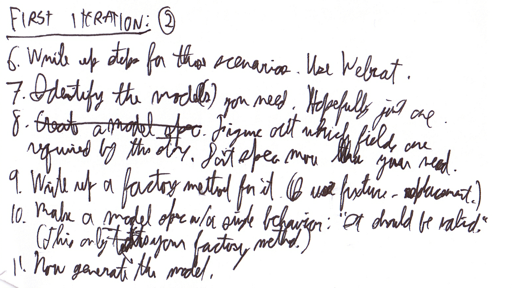 FIRST ITERATION: ②
6. Write up steps for those scenarios. Use Webrat.
7. Identify the model(s) you need. Hopefully just one.
8. Create a model spec. Figure out which fields are
required by the story. Don't spec more than you need.
9. Write up a factory method for it. ( use fixture-replacement.)
10. Make a model spec w/a single behavior: "It should be valid."
(This only tests your factory method.)
11. Now generate the model.